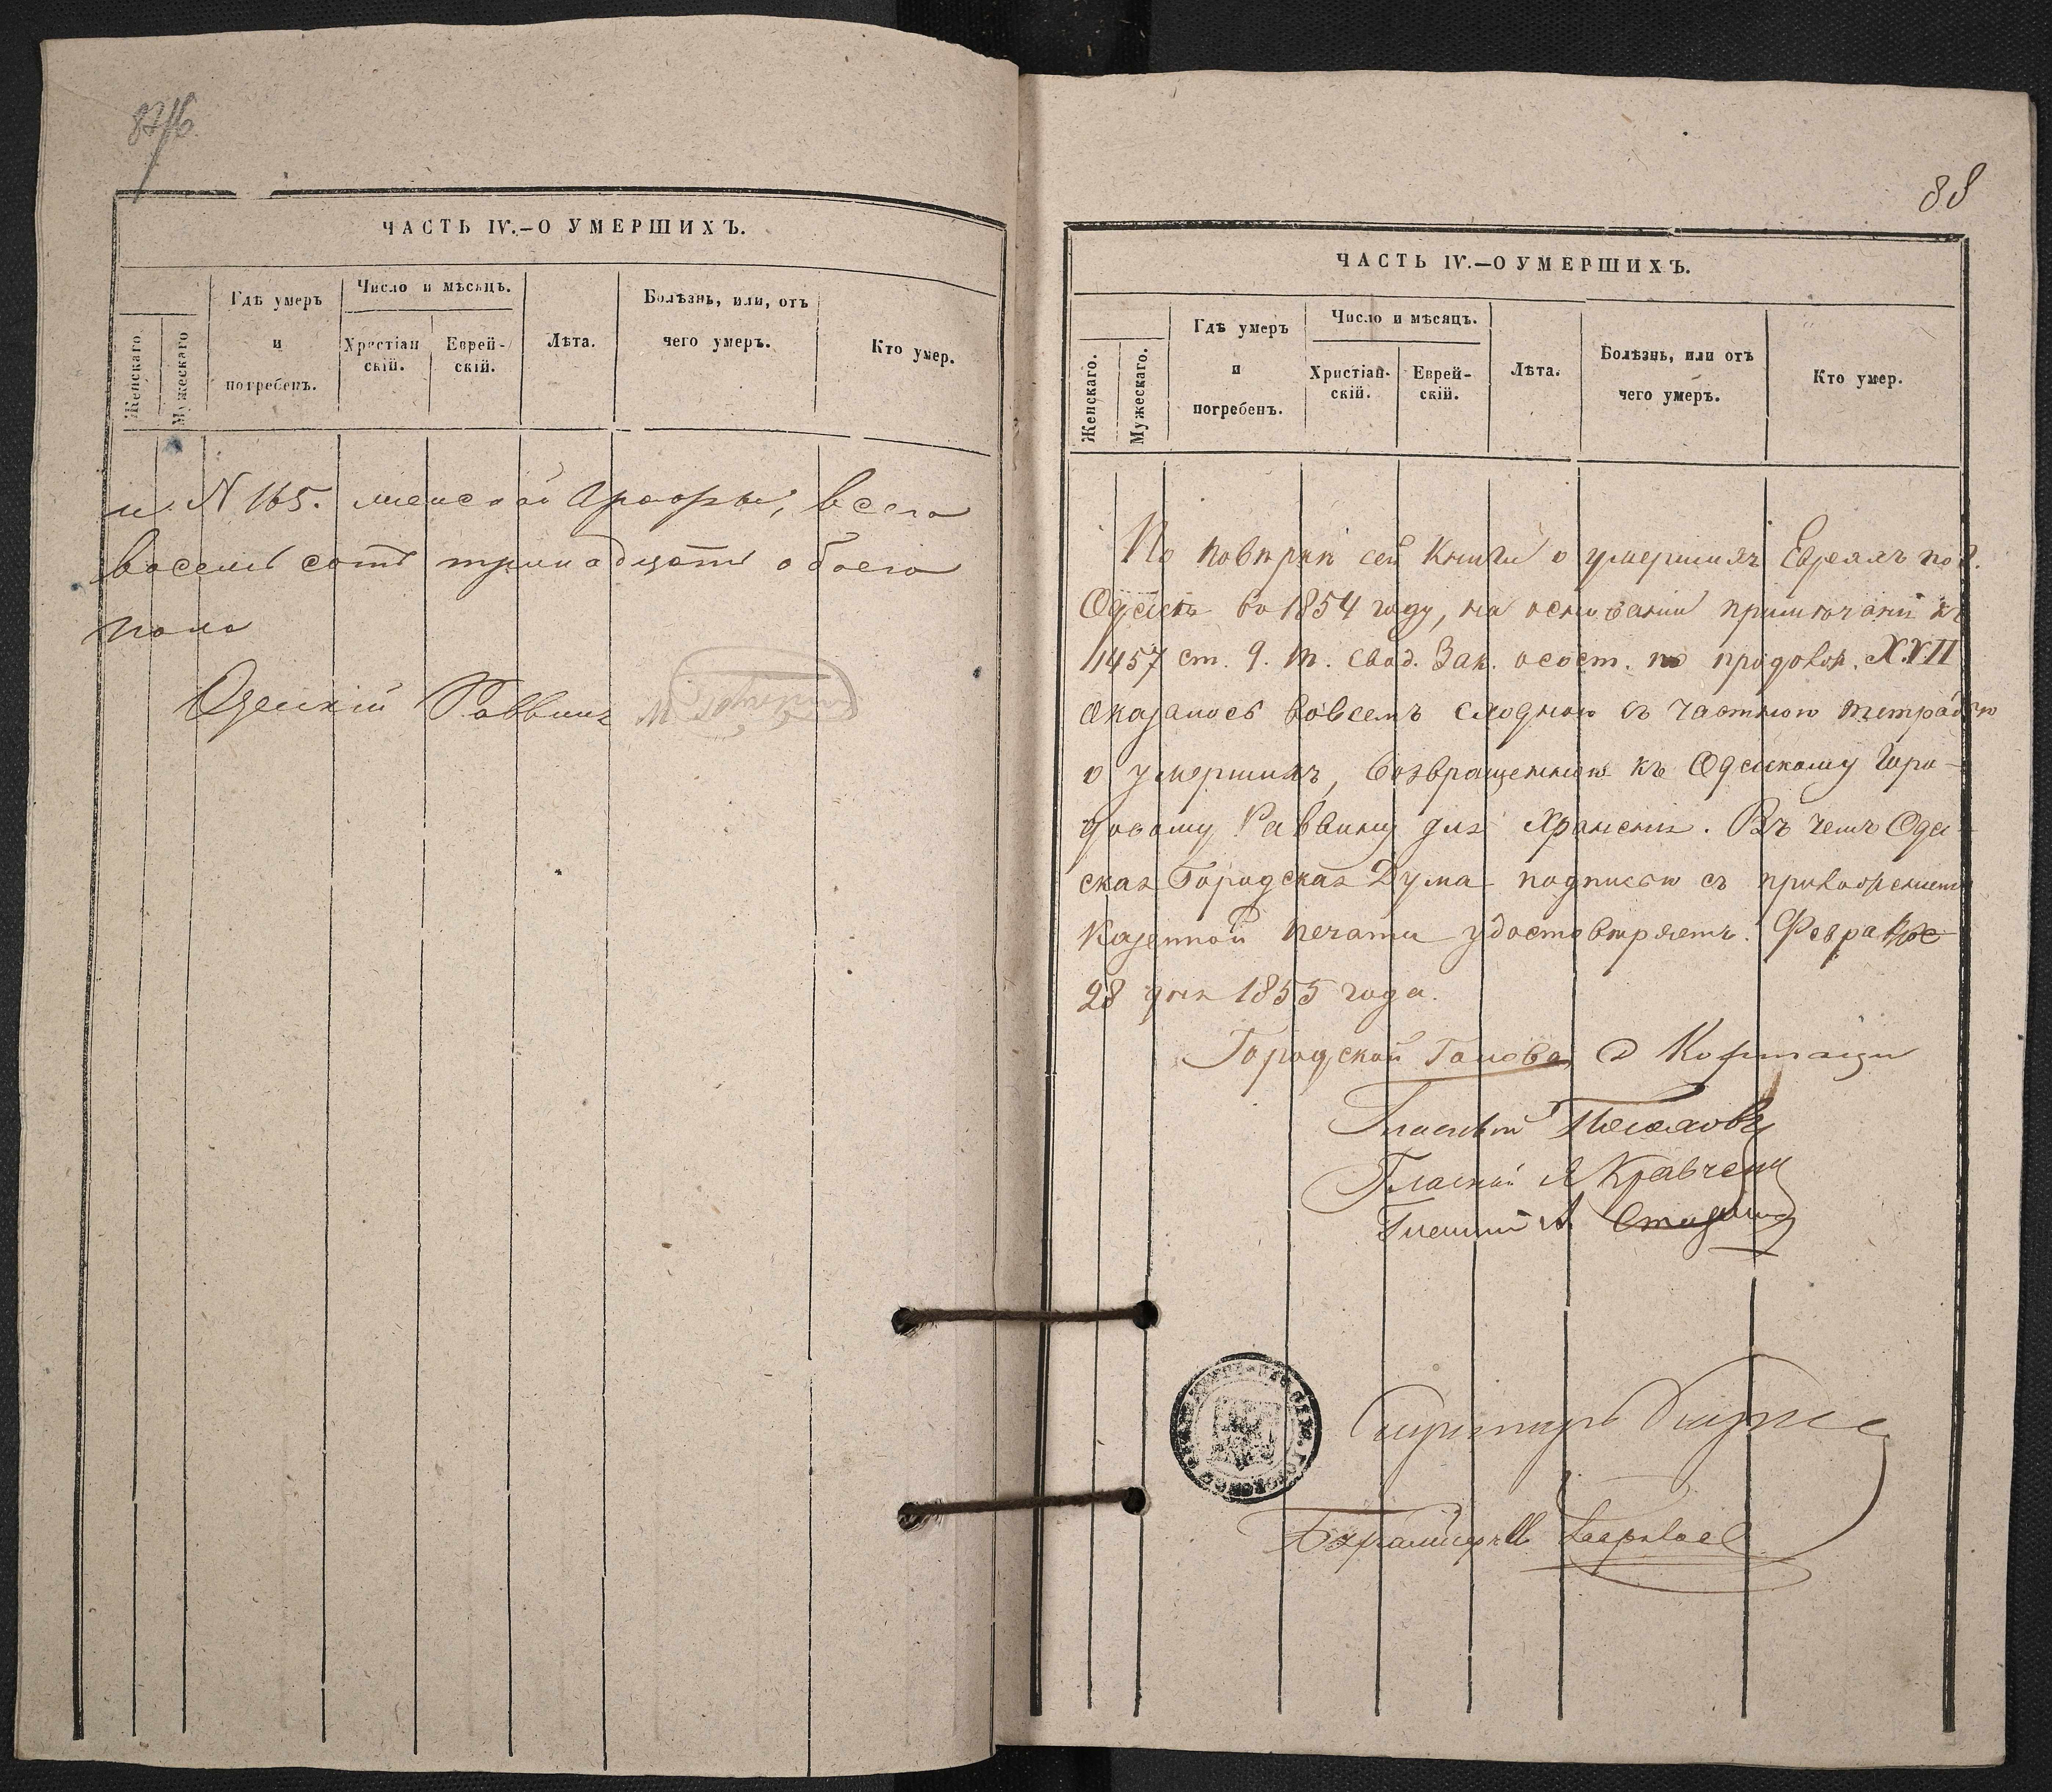 87/б
ЧАСТЬ IV.—О УМЕРШИХЪ.
Женскаго
Мужескаго
Гдѣ умеръ
и
погребенъ.
Число и мѣсяцъ.
Христіан
скій.
Еврей-
скій.
Лѣта.
Болѣзнь, или, отъ
чего умеръ.
Кто умер.
и N 165. женской Графы, всего
восемь сотъ тринадцать обоего
пола
Одескій Раввинъ
88
ЧАСТЬ IV.—О УМЕРШИХЪ.
Женскаго.
Мужескаго.
Гдѣ умеръ
и
погребенъ.
Число и мѣсяцъ.
Христіан-
скій.
Еврей-
скій.
Лѣта.
Болѣзнь, или отъ
чего умеръ.
Кто умер.
По повѣркѣ сей Книги о умершихъ Евреяхъ по г.
Одессѣ въ 1854 году, на основаніи примѣчанія къ
1457 ст. 9. т. Свод. Зак. о сост. по продолж. XVII
оказалось вовсемъ сходною съ частною тетрадью
о умершихъ, возвращенною къ Одескому Горо-
довому Раввину для храненія. Въ чемъ Оде-
ская Городская Дума подписью съ приложеніемъ
Казенной печати удостовѣряетъ. Февраля
28 дня 1855 года.
Городской Голова
Гласный
Гласный Кравченк
Гласный А.
Секретарь
Бухгалтеръ